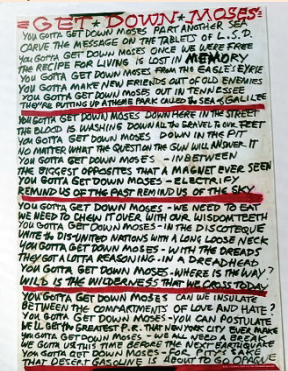 =GET★DOWN★MOSES=
YOU GOTTA GET DOWN MOSES PART ANOTHER SEA
CARVE THE MESSAGE ON THE TABLETS OF L.S.D.
YOU GOTTA GET DOWN MOSES ONCE WE WERE FREE
THE RECIPE FOR LIVING IS LOST IN MEMORY
YOU GOTTA GET DOWN MOSES FROM THE EAGLE EYRIE
YOU GOTTA MAKE NEW FRIENDS OUT OF OLD ENEMIES
YOU GOTTA GET DOWN MOSES OUT IN TENNESSEE
THEY'RE PUTTING UP A THEME PARK CALLED THE SEA OF GALILEE
YOU GOTTA GET DOWN MOSES DOWN HERE IN THE STREET
THE BLOOD IS WASHING DOWN ALL THE GRAVEL TO OUR FEET
YOU GOTTA GET DOWN MOSES DOWN IN THE PIT
NO MATTER WHAT THE QUESTION THE GUN WILL ANSWER IT
YOU GOTTA GET DOWN MOSES - INBETWEEN
THE BIGGEST OPPOSITES THAT A MAGNET EVER SEEN
YOU GOTTA GET DOWN MOSES - ELECTRIFY
REMIND US OF THE PAST REMIND US OF THE SKY
YOU GOTTA GET DOWN MOSES - WE NEED TO EAT
WE NEED TO CHEW IT OVER WITH OUR WISDOM TEETH
YOU GOTTA GET DOWN MOSES - IN THE DISCOTEQUE
WHITE IN DIS-UNITED NATIONS WITH A LONG LOOSE NECK
YOU GOTTA GET DOWN MOSES - WITH THE DREADS
THEY GOT A LOTTA REASONING - IN A DREADHEAD
YOU GOTTA GET DOWN MOSES - WHERE IS THE WAY?
WILD IS THE WILDERNESS THAT WE CROSS TODAY
YOU GOTTA GET DOWN MOSES CAN WE INSULATE
BETWEEN THE COMPARTMENTS OF LOVE AND HATE?
YOU GOTTA GET DOWN MOSES - YOU CAN POSTULATE
WE'LL GET THE GREATEST P.R. THAT NEW YORK CITY EVER MAKE
YOU GOTTA GET DOWN MOSES - WE ALL NEED A BREAK
WE GOTTA US THIS TIME BEFORE THE NEXT EARTHQUAKE
YOU GOTTA GET DOWN MOSES - FOR PITY'S SAKE
THAT DESERT GASOLINE IS ABOUT TO GO OPAQUE